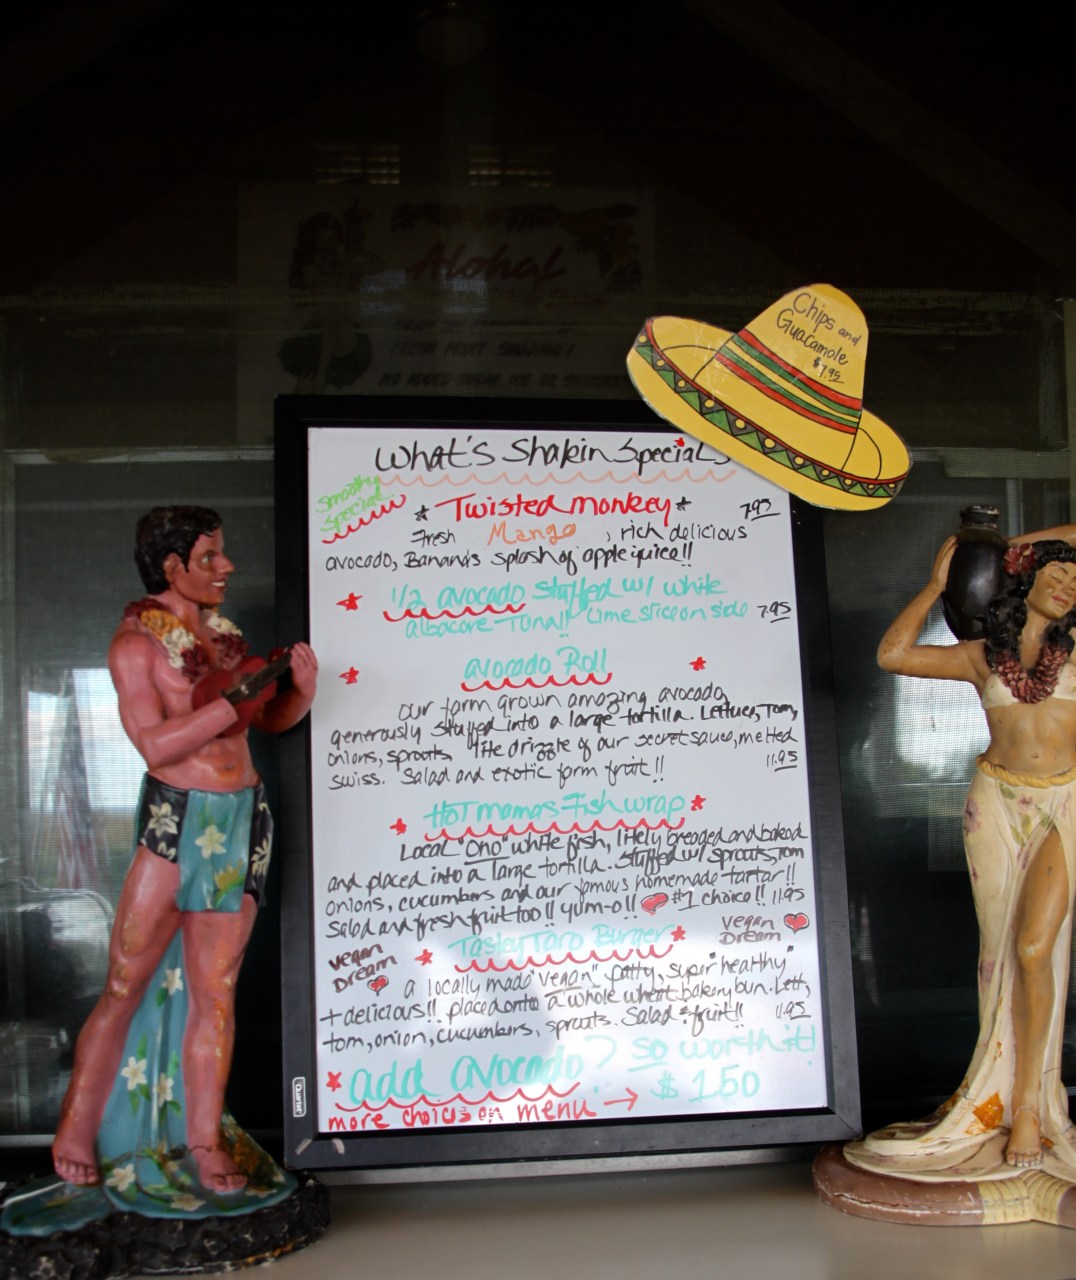 Aloha!
FRESH FRUIT SMOOTHIE!
NO ADDED SUGAR, ICE OR
Chips and
Guacamole
$7.95
What's Shakin Specials
Smoothy
Special
Twisted monkey 7.95
Fresh Mango, rich delicious
avocado, Banana's splash of apple juice!!
1/2 avocado Stuffed w/ white
albacore Tuna!! Lime slice on side 7.95
avocado Roll
Our farm grown amazing avocado,
generously Stuffed into a large tortilla. Lettuce, Tom,
onions, sprouts, lite drizzle of our secret sauce, melted
swiss. Salad and exotic farm fruit!! 11.95
Hot mamas Fish wrap
Local "Ono" white fish, litely breaded and baked
and placed into a large tortilla. Stuffed w/ sprouts, Tom
onions, cucumbers and our famous homemade tartar!!
Salad and fresh fruit too!! yum-o!! #1 choice!! 11.95
Vegan
Dream
Tastey Taro Burger
Vegan
Dream
a locally made "vegan" patty, super "healthy"
+ delicious!! placed onto a whole wheat bakery bun. Lett,
tom, onion, cucumbers, sprouts. Salad & fruit!! 11.95
add avocado? So worth it!
$1.50
more choices on menu →
Quartet